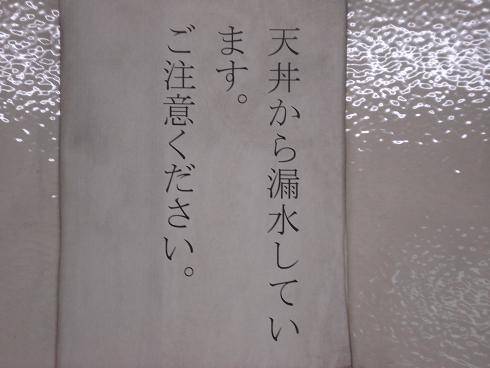 天井から漏水してい
ます。
ご注意ください。